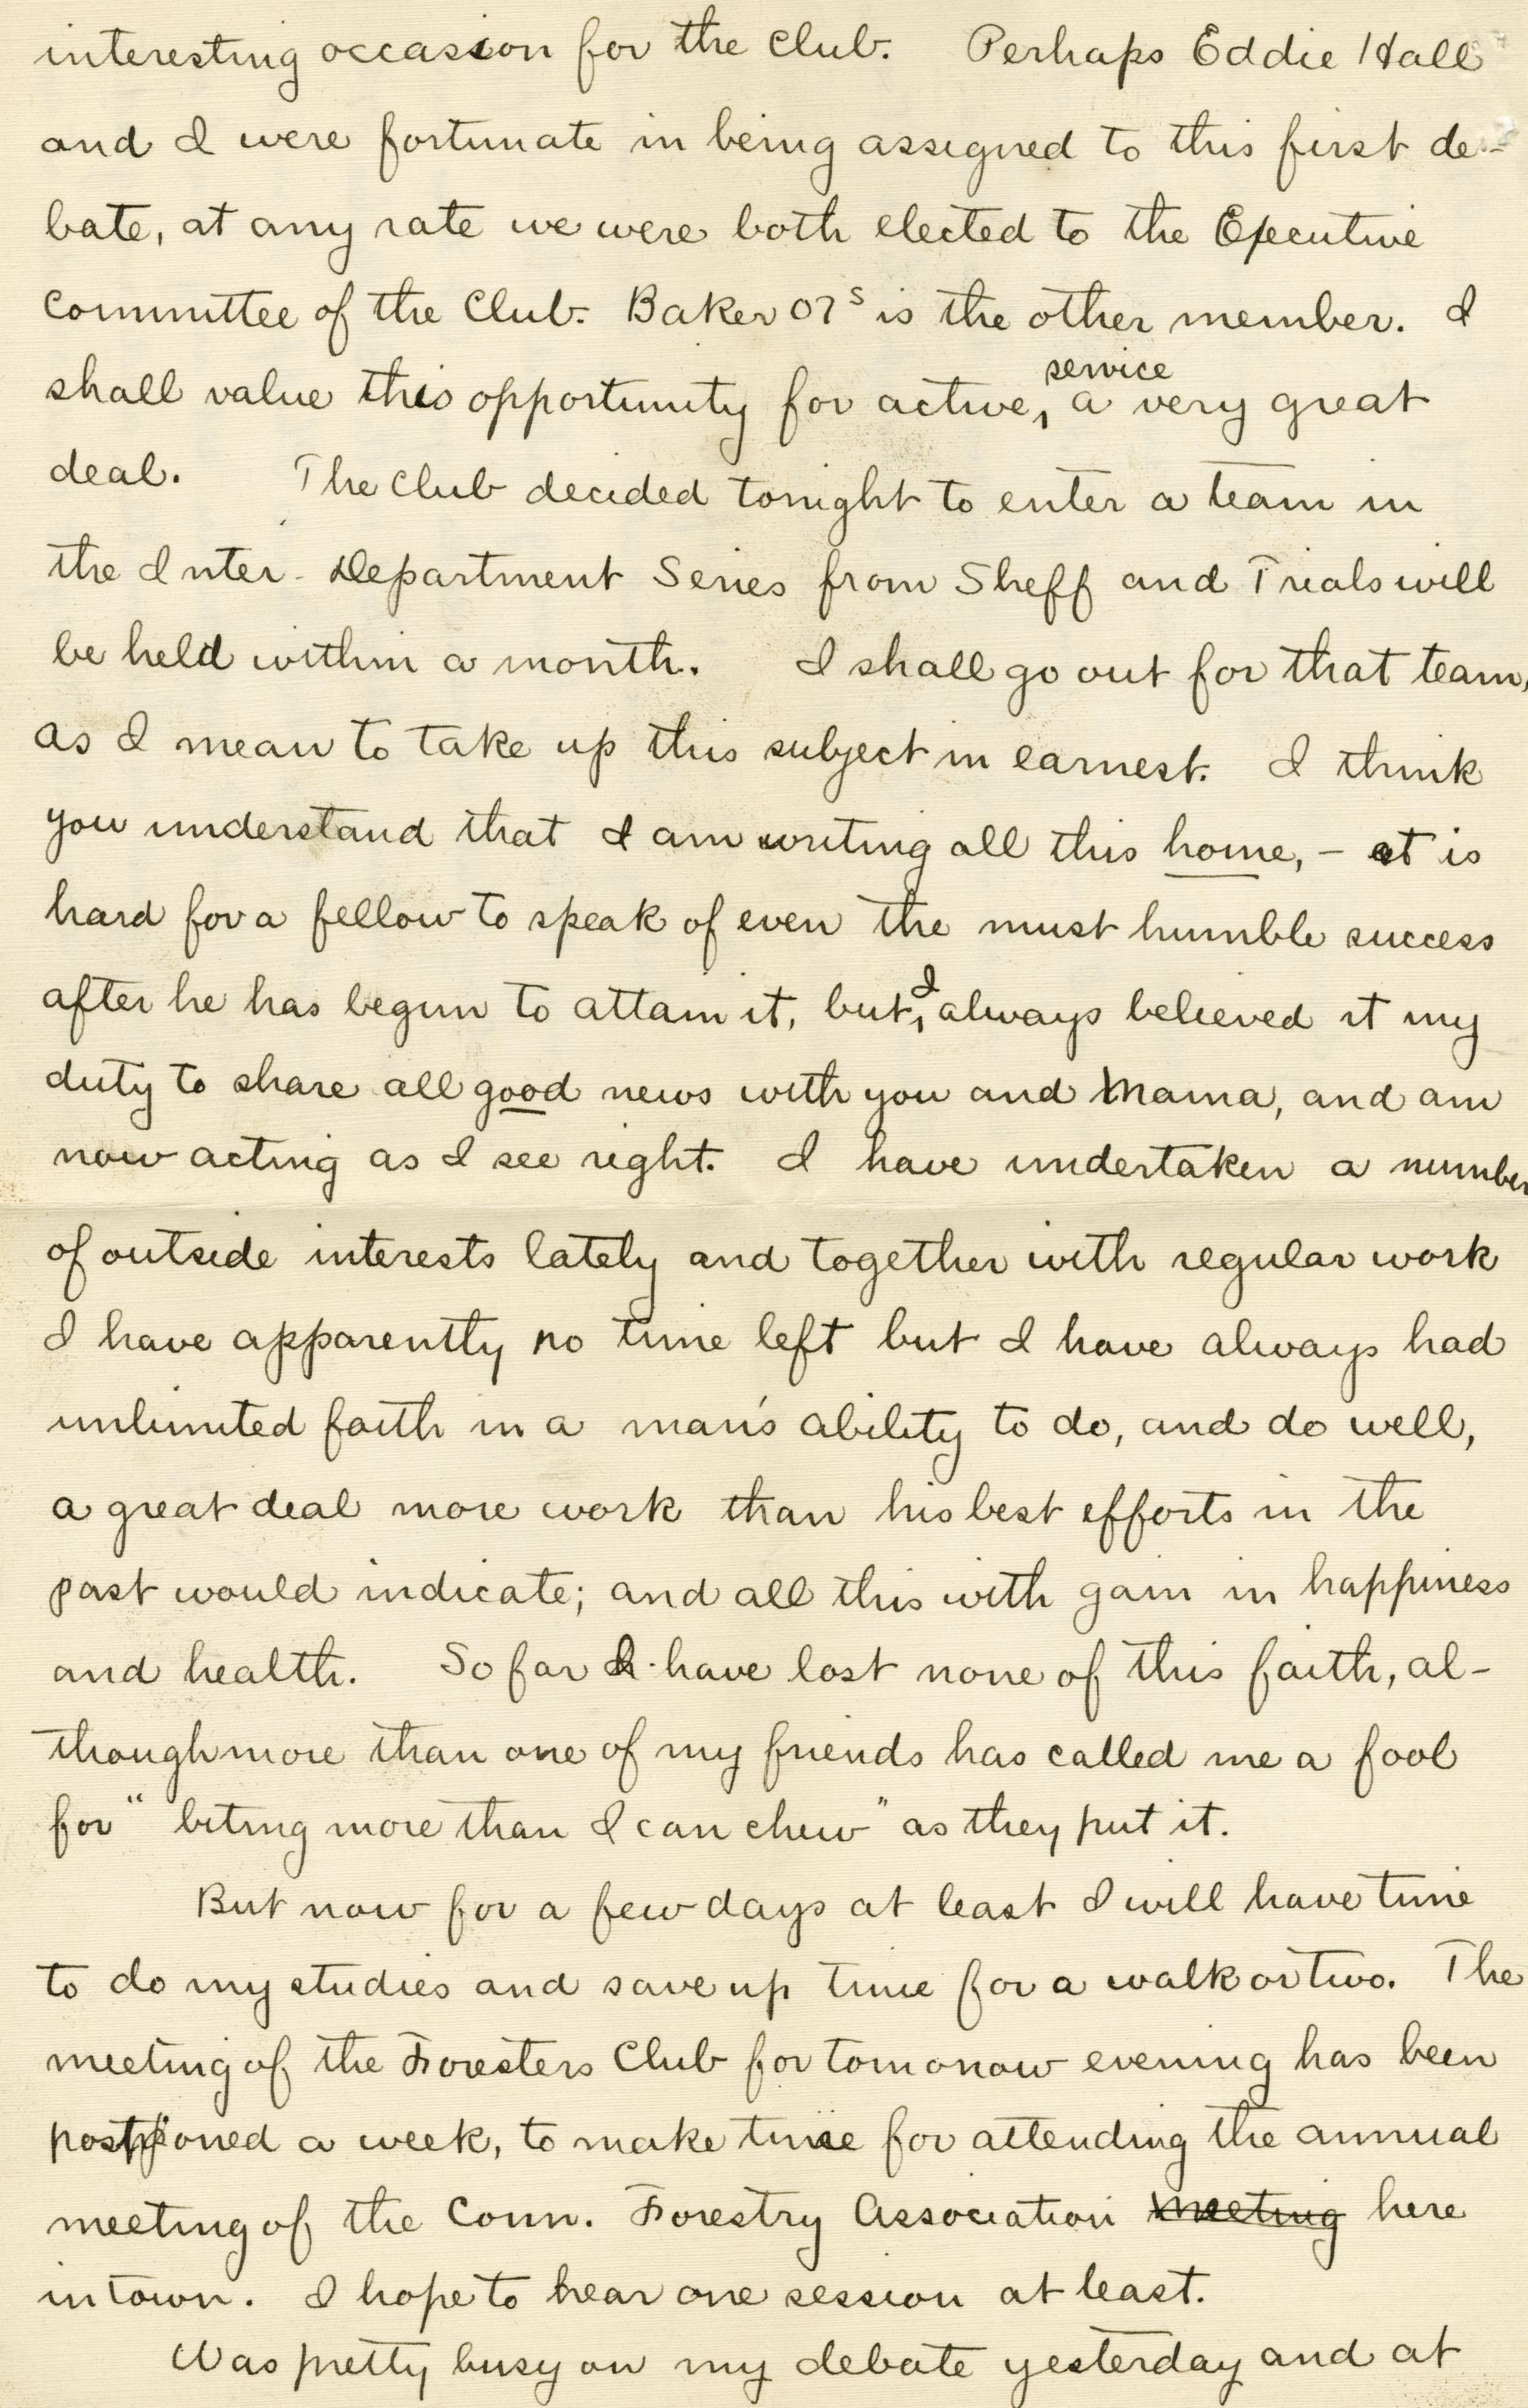 interesting occasion for the Club. Perhaps Eddie Hall
and I were fortunate in being assigned to this first de-
bate, at any rate we were both elected to the Executive
Committee of the Club. Baker 07 S is the other member. I
shall value this opportunity for active, service a very great
deal. The Club decided tonight to enter a team in
the Inter-Department Series from Sheff and Trials will
be held within a month. I shall go out for that team,
as I mean to take up this subject in earnest. I think
you understand that I am writing all this home, - it is
hard for a fellow to speak of even the must humble success
after he has begun to attain it, but I always believed it my
duty to share all good news with you and Mama, and am
now acting as I see right. I have undertaken a number
of outside interests lately and together with regular work
I have apparently no time left but I have always had
unlimited faith in a man's ability to do, and do well,
a great deal more work than his best efforts in the
past would indicate; and all this with gain in happiness
and health. So far I have lost none of this faith, al-
though more than one of my friends has called me a fool
for "biting more than I can chew" as they put it.
But now for a few days at least I will have time
to do my studies and save up time for a walk or two. The
meeting of the Foresters Club for tomorrow evening has been
postponed a week, to make time for attending the annual
meeting of the Conn. Forestry Association meeting here
in town. I hope to hear one session at least.
Was pretty busy on my debate yesterday and at